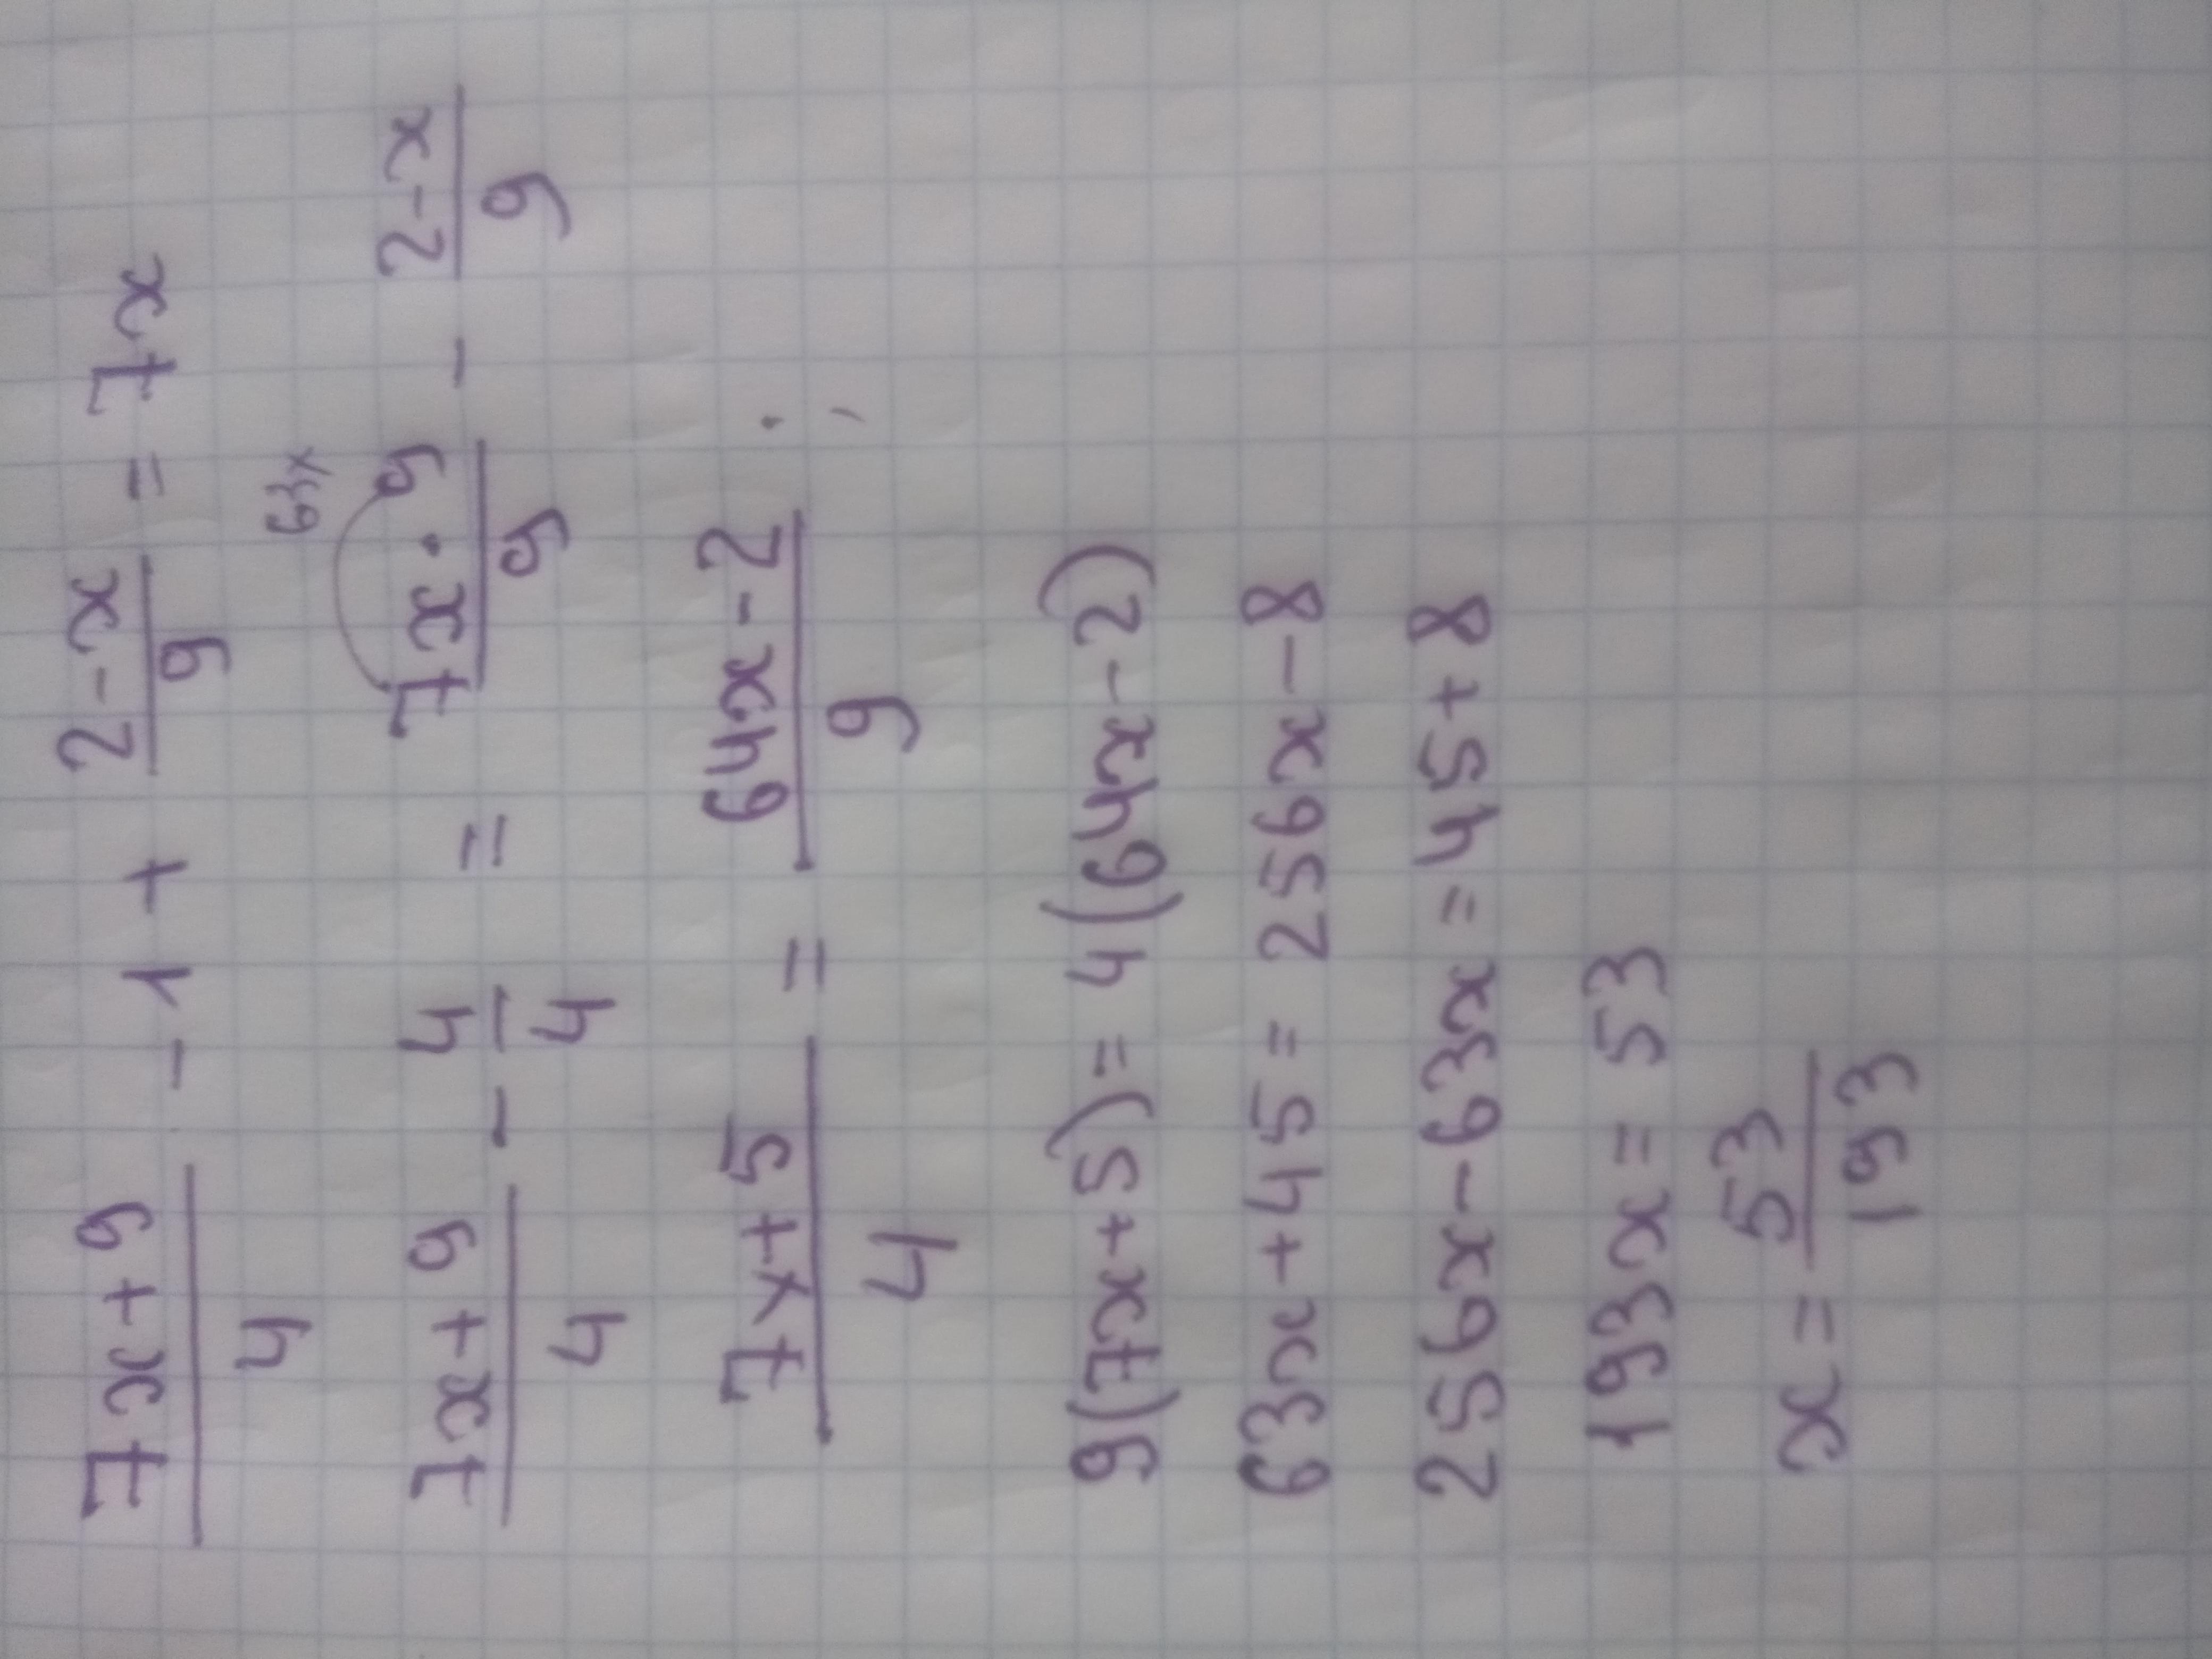 (7x + 9)/4 - 1 + (2 - x)/9 = 7x
63x
(7x + 9)/4 - 4/4 = (7x · 9)/9 - (2 - x)/9
(7x + 5)/4 = (64x - 2)/9
9(7x + 5) = 4(64x - 2)
63x + 45 = 256x - 8
256x - 63x = 45 + 8
193x = 53
x = 53/193